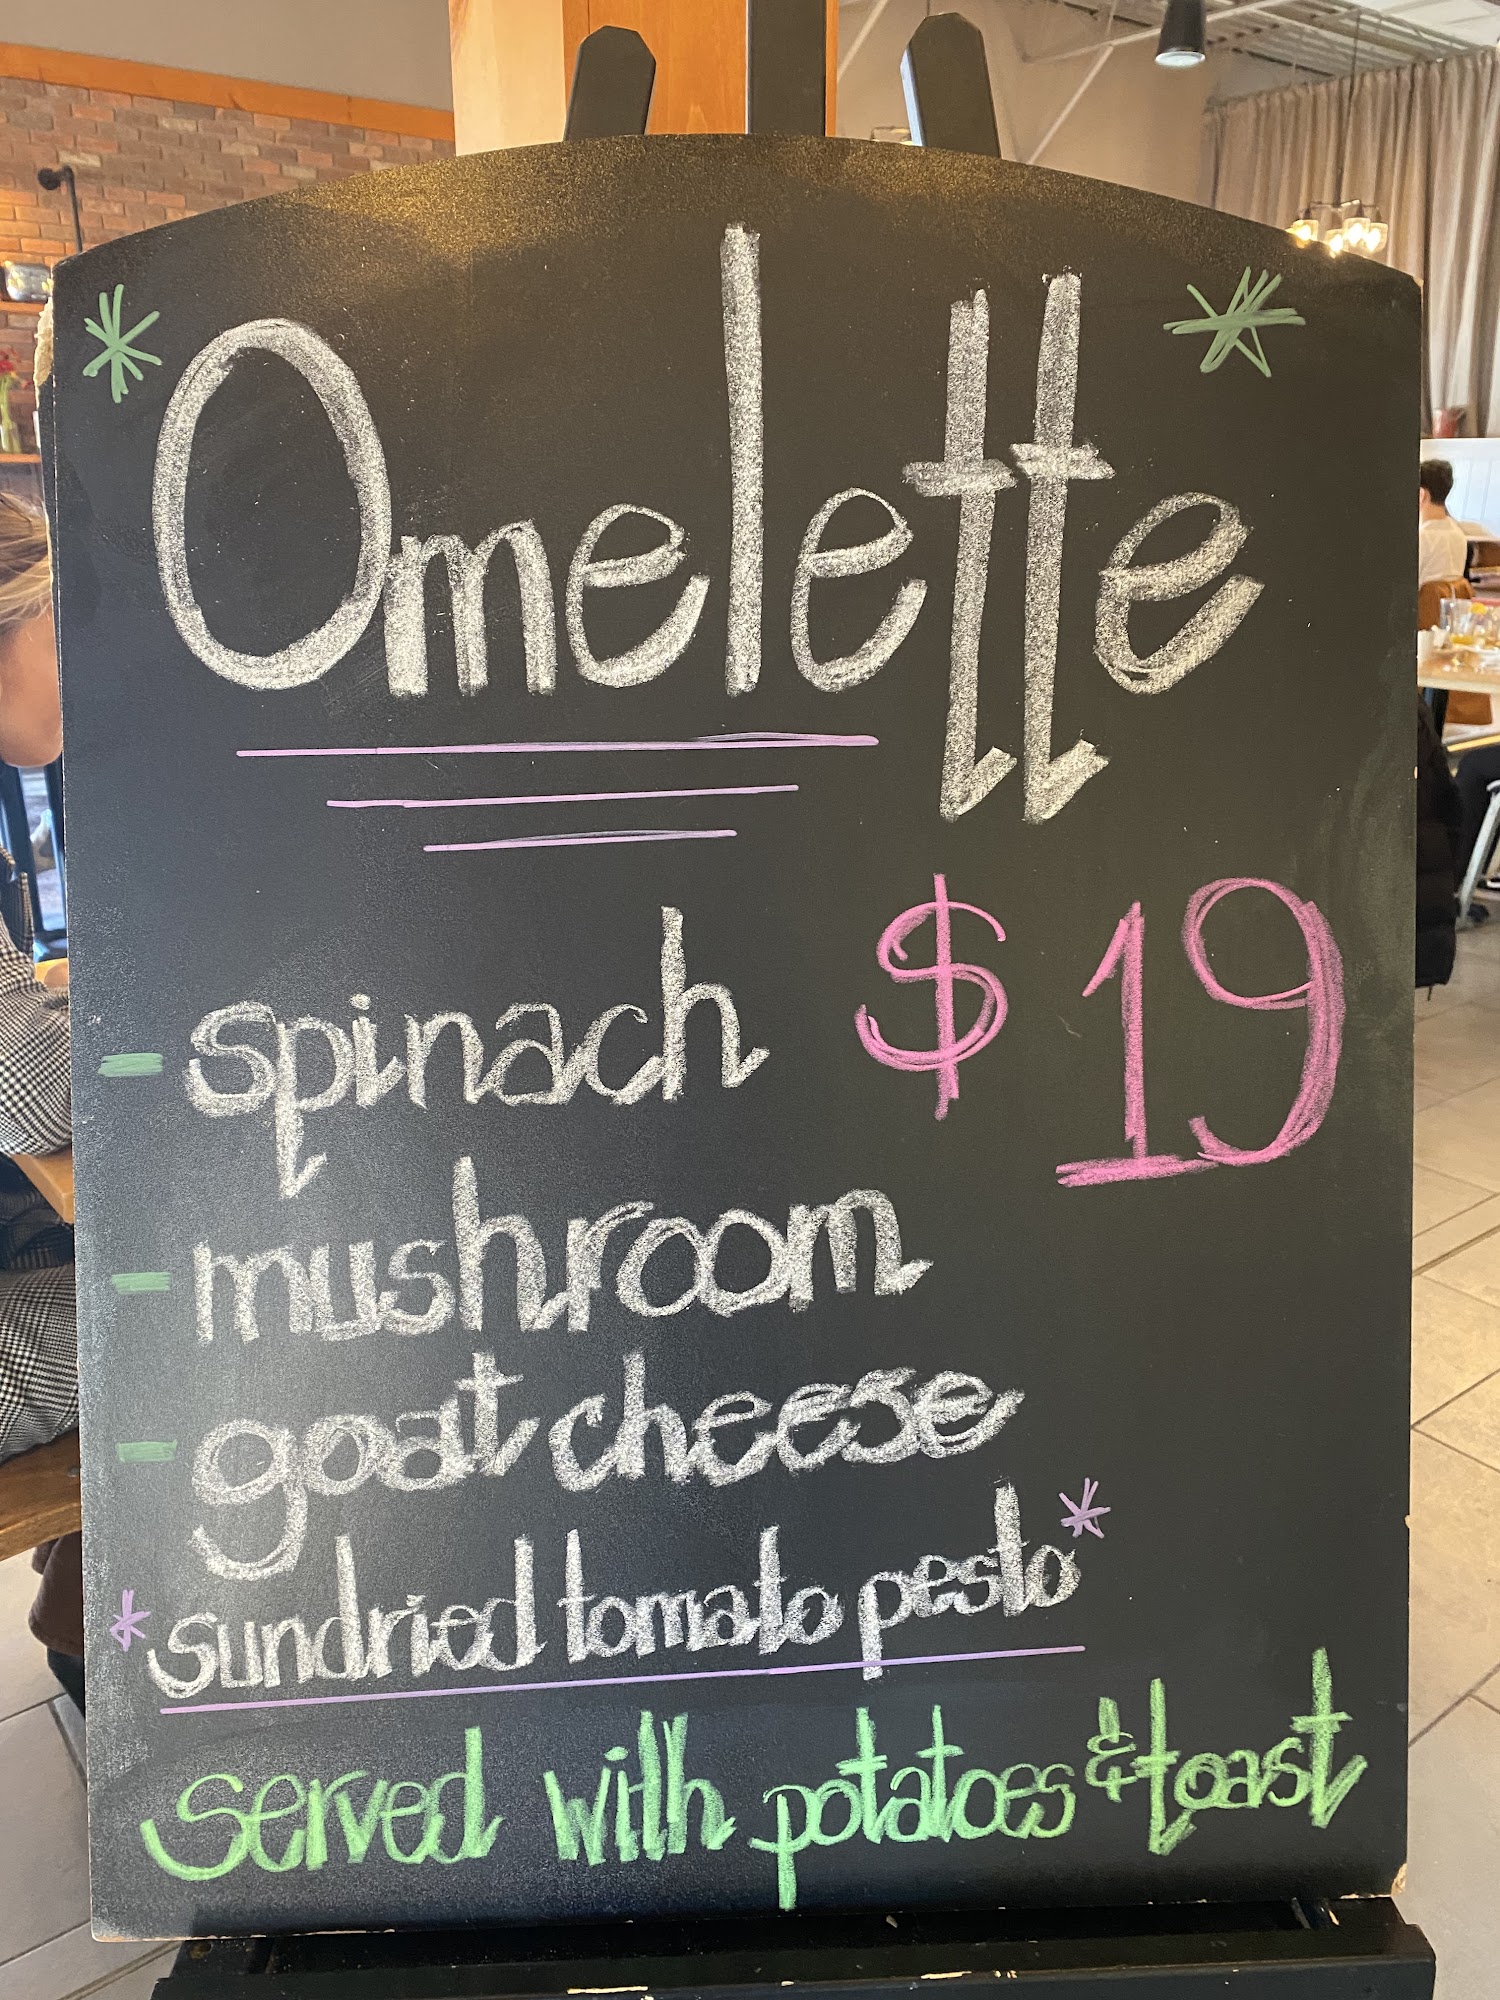 * Omelette *
- spinach $19
- mushroom
- goat cheese
*sundried tomato pesto*
served with potatoes & toast